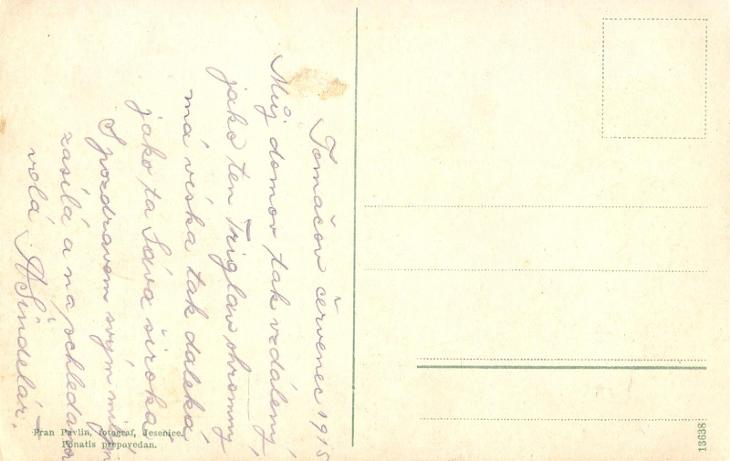 Tomačov červenec 1915
Můj domov tak vzdálený,
jako ten Triglav ohromný
má víska tak daleká,
jako ta Sáva široká
S pozdravem svým milým
zasílá a na shledanou
volá ASindelář.
Fran Pavlin, fotograf, Jesenice.
Ponatis prepovedan.
13638